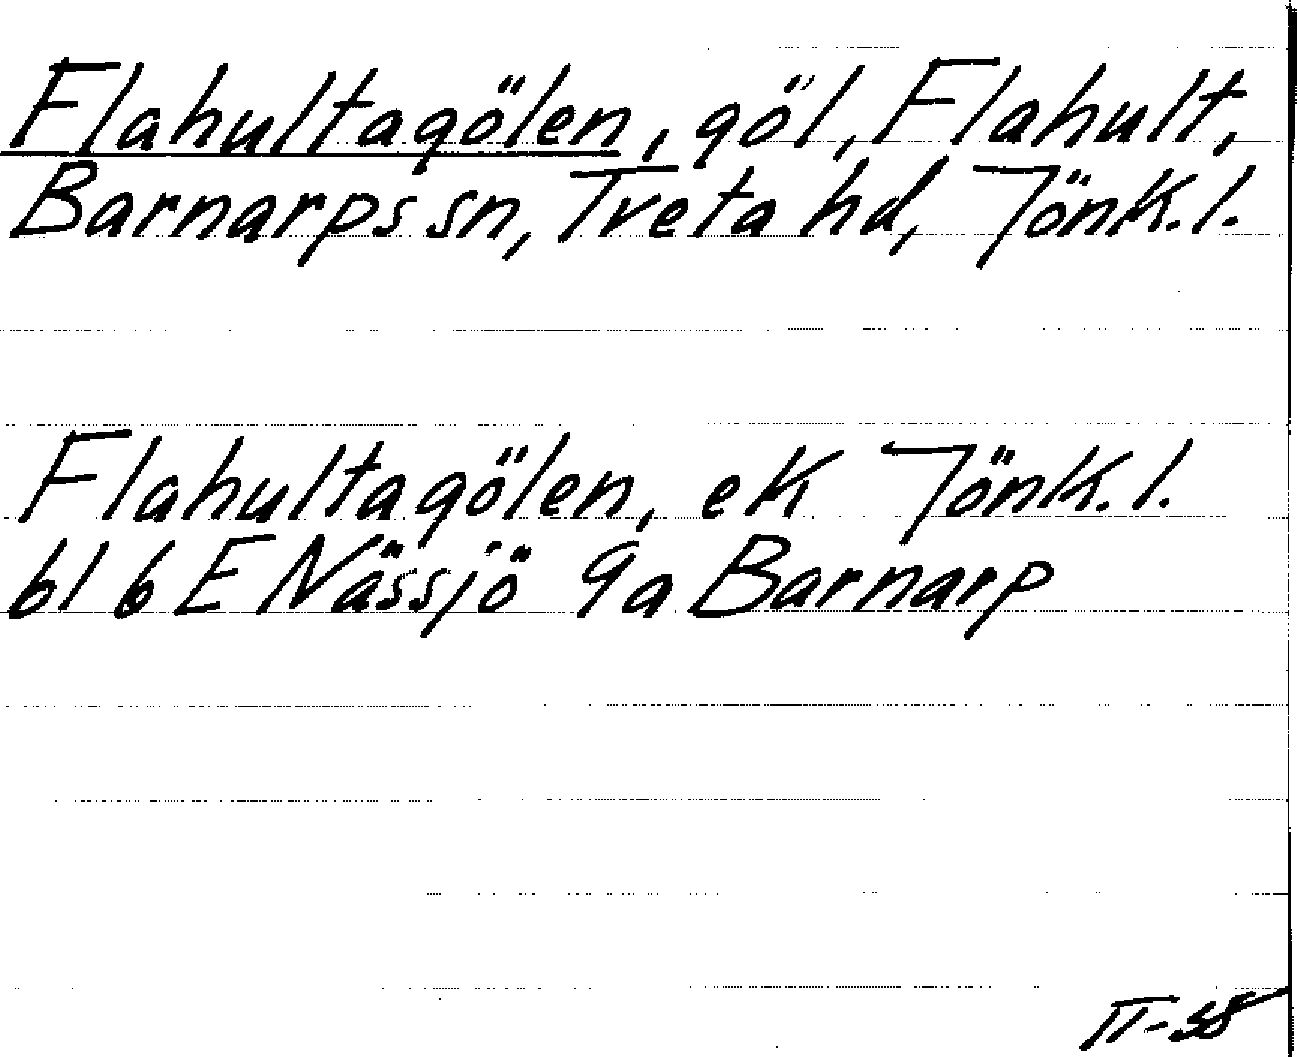 Flahultagölen, göl, Flahult,
Barnarps sn, Tveta hd, Jönk.l.
Flahultagölen, ek Jönk.l.
bl 6 E Nässjö 9a Barnarp
II-38